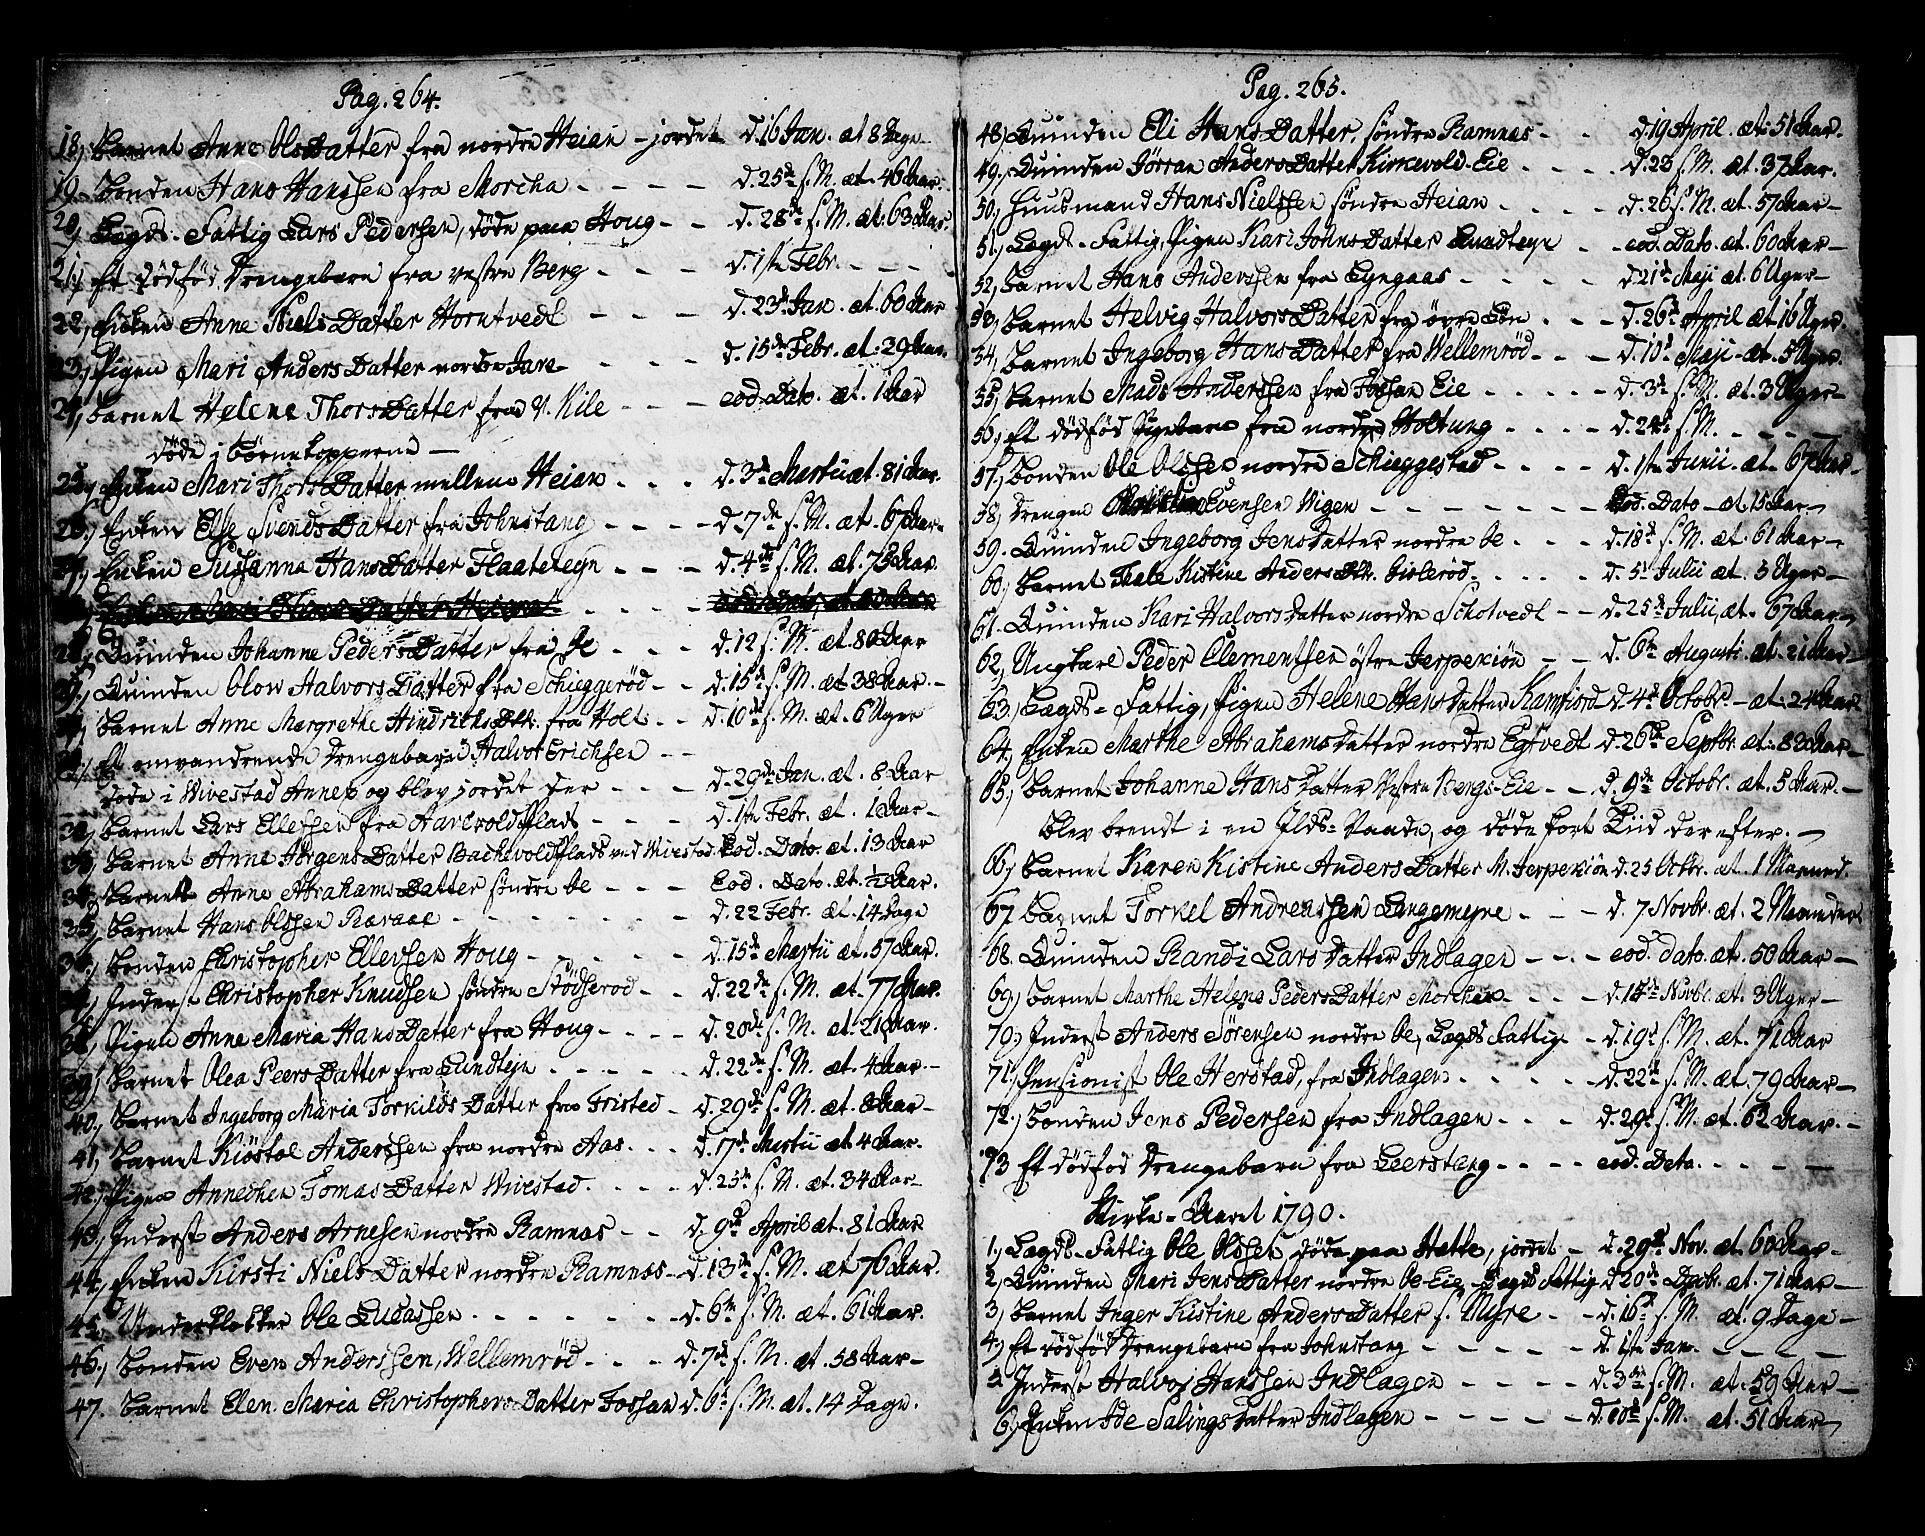 Pag. 264.
18, Barnet Anne OlsDatter fra nordre Heian - jordet d. 16 Jan. æt. 8 Dage
19. Bonden Hans Hanssen fra Morcha - - - - d. 25de s. M. æt. 46 Aar.
20, Lægds-Fattig Lars Pedersen, døde paa Houg - - d. 28de s. M. æt. 63 Aar.
21, Et dødfød Drengebarn fra vestre Berg - - - - d. 1ste Febr. - - -
22, Enken Anne NielsDatter Horntvedt - - - d. 23de Jan. æt. 60 Aar
23, Pigen Mari AndersDatter nordre Jare - - - d. 15de Febr. æt. 29 Aar.
24, Barnet Helene ThorsDatter fra V. Kile - - - eod. Dato. æt. 1 Aar
døde i Børnekopperne -
25, Enken Mari ThorsDatter mellem Heian . . . d. 3de Martii æt. 81 Aar.
26, Enken Else SvendsDatter fra Johnstang - - - - d. 7de s. M. æt. 67 Aar.
27, Enken Susanna HansDatter Flaatetegn - - - d. 4de s. M. æt. 78 Aar.
28, Quinden Johanne PedersDatter fra Øe - - - d. 12 s. M. æt. 80 Aar
29, Quinden Olow HalvorsDatter fra Schieggerød - - d. 15de s. M. æt. 38 Aar. -
Barnet Anne Margrethe Hindrichs Dtr. fra Holt - - d. 10de s. M. æt. 6 Uger
Et omvandrende Drengebarn Halvor Erichsen - -
døde i Wivestad Annex og blev jordet der - - - d. 29de Jan. æt. 8 Aar
Barnet Lars Ellefsen fra Aarevoldsplads - - - - d. 1ste Febr. æt. 1 Aar -
Barnet Anne JørgensDatter Bachevoldsplads ved Wivestad. Eod. Dato. æt. 13 Aar
34, Barnet Anne AbrahamsDatter søndre Øe - - - Eod. Dato. æt. ½ Aar.
35, Barnet Hans Olssen Ravaae - - - - - - - d. 22 Febr. æt. 14 Dage
36, Bonden Christopher Ellevsen Houg - - - - - d. 15de Martii æt. 57 Aar.
37, Inderst Christopher Knudsen søndre Stødserød - - d. 22de s. M. æt. 77 Aar.
38, Pigen Anne Maria HansDatter fra Houg - - - - d. 20de s. M. æt. 21 Aar.
39, Barnet Olea PeersDatter fra Lundtejn - - - - - d. 22de s. M. æt. 4 Aar. -
40, Barnet Ingeborg Maria TorkildsDatter fra Fristed - d. 29de s. M. æt. 8 Aar -
41, Barnet Kiøstol Anderssen fra nordre Aas. . . . d. 17de Martii æt. 4 Aar.
42, Pigen Annechen TomasDatter Wivestad. - - - - d. 25de s. M. æt. 34 Aar -
43, Inderst Anders Arnesen nordre Ramnæs - - d. 9de April æt. 81 Aar
44, Enken Kirsti NielsDatter nordre Ramnæs - d. 13de s. M. æt. 76 Aar.
45, Underklokker Ole Lucassen - - - - - - - d. 6te s. M. æt. 61 Aar.
46, Bonden Even Anderssen, Wellemrød - - - d. 7de s. M. æt. 58 Aar -
47. Barnet Elen Maria ChristophersDatter Fossan d. 6te s. M. æt. 14 Dage.
Pag. 265.
48, Quinden Eli HansDatter, søndre Ramnæs - - d. 19 April. æt. 51 Aar.
49, Quinden Jørran AndersDatter Kirkevold-Eie - - - - d. 23 s. M. æt. 37 Aar.
50, Huusmand Hans Nielssen søndre Heian - - - - d. 26 s. M. æt. 57 Aar -
51, Lægds-Fattig, Pigen Kari JohnsDatter Lundtegn - - eod. Dato. æt. 60 Aar -
52, Barnet Hans Anderssen fra Lyngaas - - - - - d. 21de Maji æt. 6 Uger -
53, Barnet Helvig HalvorsDatter fra øvre Løn . - - d. 26de April æt 16 Uger
54, Barnet Ingeborg HansDatter fra Wellemrød - - - d. 10de Maji - æt. 5 Uger.
55, Barnet Mads Anderssen fra Fossan Eie - - - - - d. 3de s. M. æt. 3 Uger -
56, Et dødfød Pigebarn fra nordre Holtung - - - - d. 24de s. M. - - - -
57, Bonden Ole Olssen nordre Schieggestad - - - - d. 1ste Junii. æt. 67 Aar -
58, Drengen Evensen Wigen - - - - - - - Eod. Dato - æt 15 Aar -
59. Quinden Ingeborg JensDatter nordre Øe - - - d. 18de s. M. æt. 61 Aar -
60, Barnet Thale Kistine Anders Dtr. Gislerød - - - - d. 5te Julii æt. 3 Uger -
61. Quinden Kari HalvorsDatter nordre Schotvedt - - d. 25de Julii, æt. 67 Aar -
62, Ungkarl Peder Clementsen østre Jerpekiøn - - d. 6te Augusti æt. 21 Aar -
63, Lægds-Fattig, Pigen Helene HansDatter Ramfiord d. 4de Octobr. - æt. 24 Aar
64, Enken Marthe AbrahamsDatter nordre Egtvedt d. 26de Septbr. æt. 82 Aar -
65, Barnet Johanne HansDatter Vestre Bergs-Eie - - d. 9de Octobr. æt. 5 Aar. -
Blev brendt i en Ilds-Vaade, og døde kort Tiid derefter. -
66, Barnet Karen Kistine AndersDatter M. Jerpekiøn d. 25 Octbr. æt. 1 Maaned.
67 Barnet Torkel Andreassen Langemyre - - - d. 7 Novbr. æt. 2 Maaneder
68. Quinden Randi LarsDatter Indlagen - - - eod. dato. æt. 50 Aar -
69, Barnet Marthe Helena PedersDatter Morcha - - - - d. 15de Novbr. æt. 3 Uger -
70, Inderst Anders Sørensen nordre Øe, Lægds Fattig - d. 19de s. M. æt. 71 Aar
71, Pensionist Ole Herstad, fra Indlagen - - - - - d. 22de s. M. æt. 79 Aar -
72, Bonden Jens Pedersen fra Indlagen - - - d. 29de s. M. æt. 62 Aar. -
73 Et dødfød Drengebarn fra Leerstang - - - - eod. Dato. - - - -
Kirke-Aaret 1790.
1, Lægds-Fattig Ole Olssen, døde paa Hatte, jordet - d. 29de Nov. æt. 60 Aar -
2, Quinden Mari JensDatter nordre Øe-Eie - Lægds Fattig d. 20de Decbr. æt. 71 Aar -
3, Barnet Inger Kistine AndersDatter s. Myre - - d. 16de s. M. æt. 9 Dage -
4, Et dødfød Drengebarn fra Johnstang - - - - - d. 1ste Jan. - - - -
5. Inderst Halvor Hanssen Indlagen - - - - - d. 3die s. M. æt. 59 Aar -
6, Enken Ide SalingsDatter Indlagen - - - - - d. 10de s. M. æt. 51 Aar -